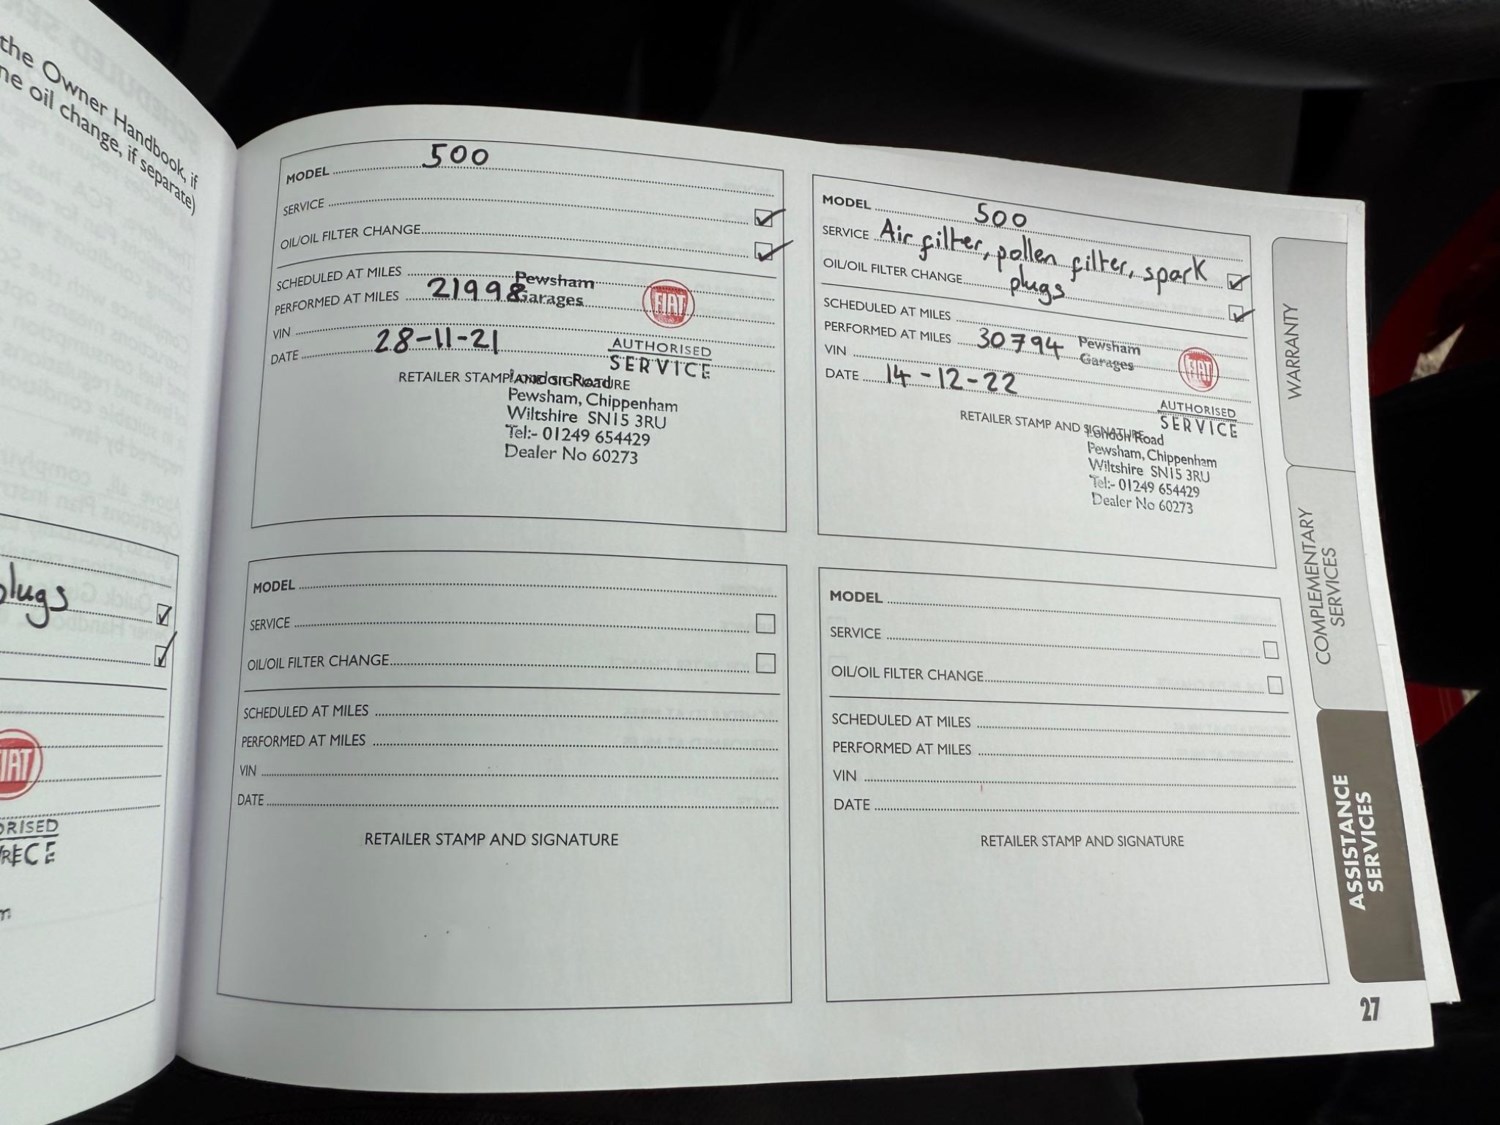 the Owner Handbook, if
ne oil change, if separate)
plugs
FIAT
MODEL 500
SERVICE
OIL/OIL FILTER CHANGE
SCHEDULED AT MILES
PERFORMED AT MILES 21998
Pewsham
Garages
FIAT
VIN
DATE 28-11-21
AUTHORISED
SERVICE
RETAILER STAMP AND SIGNATURE
London Road
Pewsham, Chippenham
Wiltshire SN15 3RU
Tel:- 01249 654429
Dealer No 60273
MODEL 500
SERVICE Air filter, pollen filter, spark
plugs
OIL/OIL FILTER CHANGE
SCHEDULED AT MILES
PERFORMED AT MILES 30794
Pewsham
Garages
FIAT
VIN
DATE 14-12-22
AUTHORISED
SERVICE
RETAILER STAMP AND SIGNATURE
London Road
Pewsham, Chippenham
Wiltshire SN15 3RU
Tel:- 01249 654429
Dealer No 60273
MODEL
SERVICE
OIL/OIL FILTER CHANGE
SCHEDULED AT MILES
PERFORMED AT MILES
VIN
DATE
RETAILER STAMP AND SIGNATURE
MODEL
SERVICE
OIL/OIL FILTER CHANGE
SCHEDULED AT MILES
PERFORMED AT MILES
VIN
DATE
RETAILER STAMP AND SIGNATURE
WARRANTY
COMPLEMENTARY
SERVICES
ASSISTANCE
SERVICES
27